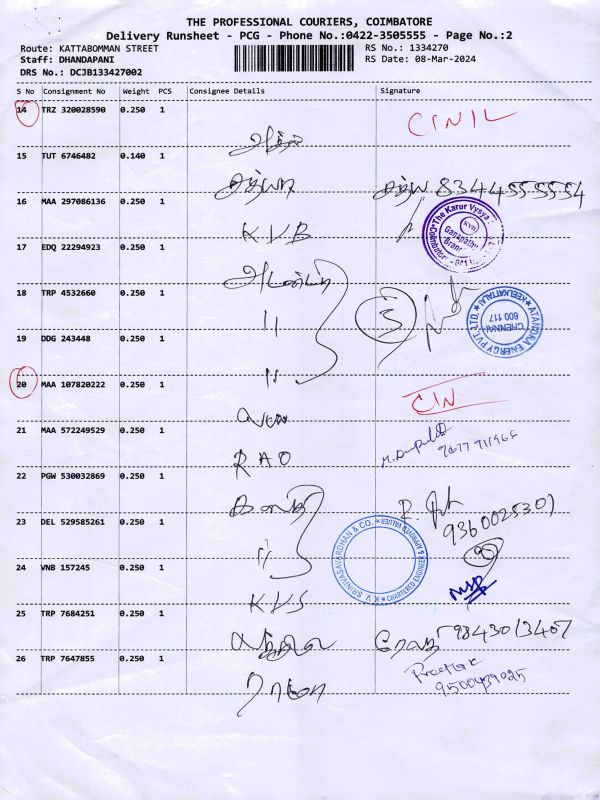 THE PROFESSIONAL COURIERS, COIMBATORE
Delivery Runsheet - PCG - Phone No.:0422-3505555 - Page No.:2
Route: KATTABOMMAN STREET
RS No.: 1334270
Staff: DHANDAPANI
RS Date: 08-Mar-2024
DRS No.: DCJB133427002
S No Consignment No Weight PCS Consignee Details Signature
14 TRZ 320028590 0.250 1
CINIL
15 TUT 6746482 0.140 1
சத்யா சத்ய 8344555554
16 MAA 297086136 0.250 1
KVB
The Karur Vysya
KVB
Ganapathy
Branch
17 EDQ 22294923 0.250 1
18 TRP 4532660 0.250 1
11
ATANDRA ENERGY PVT. LTD. KEELKATTALAI
CHENNAI
600 117
19 DDG 243448 0.250 1
11
20 MAA 107820222 0.250 1
CIN
21 MAA 572249529 0.250 1
RAO
22 PGW 530032869 0.250 1
9360025301
23 DEL 529585261 0.250 1
11
K.V. SRINIVASAVARDHAN & CO. CHARTERED ENGINEER & APPROVED VALUER
24 VNB 157245 0.250 1
KVS
25 TRP 7684251 0.250 1
9843013407
26 TRP 7647855 0.250 1
9500439025